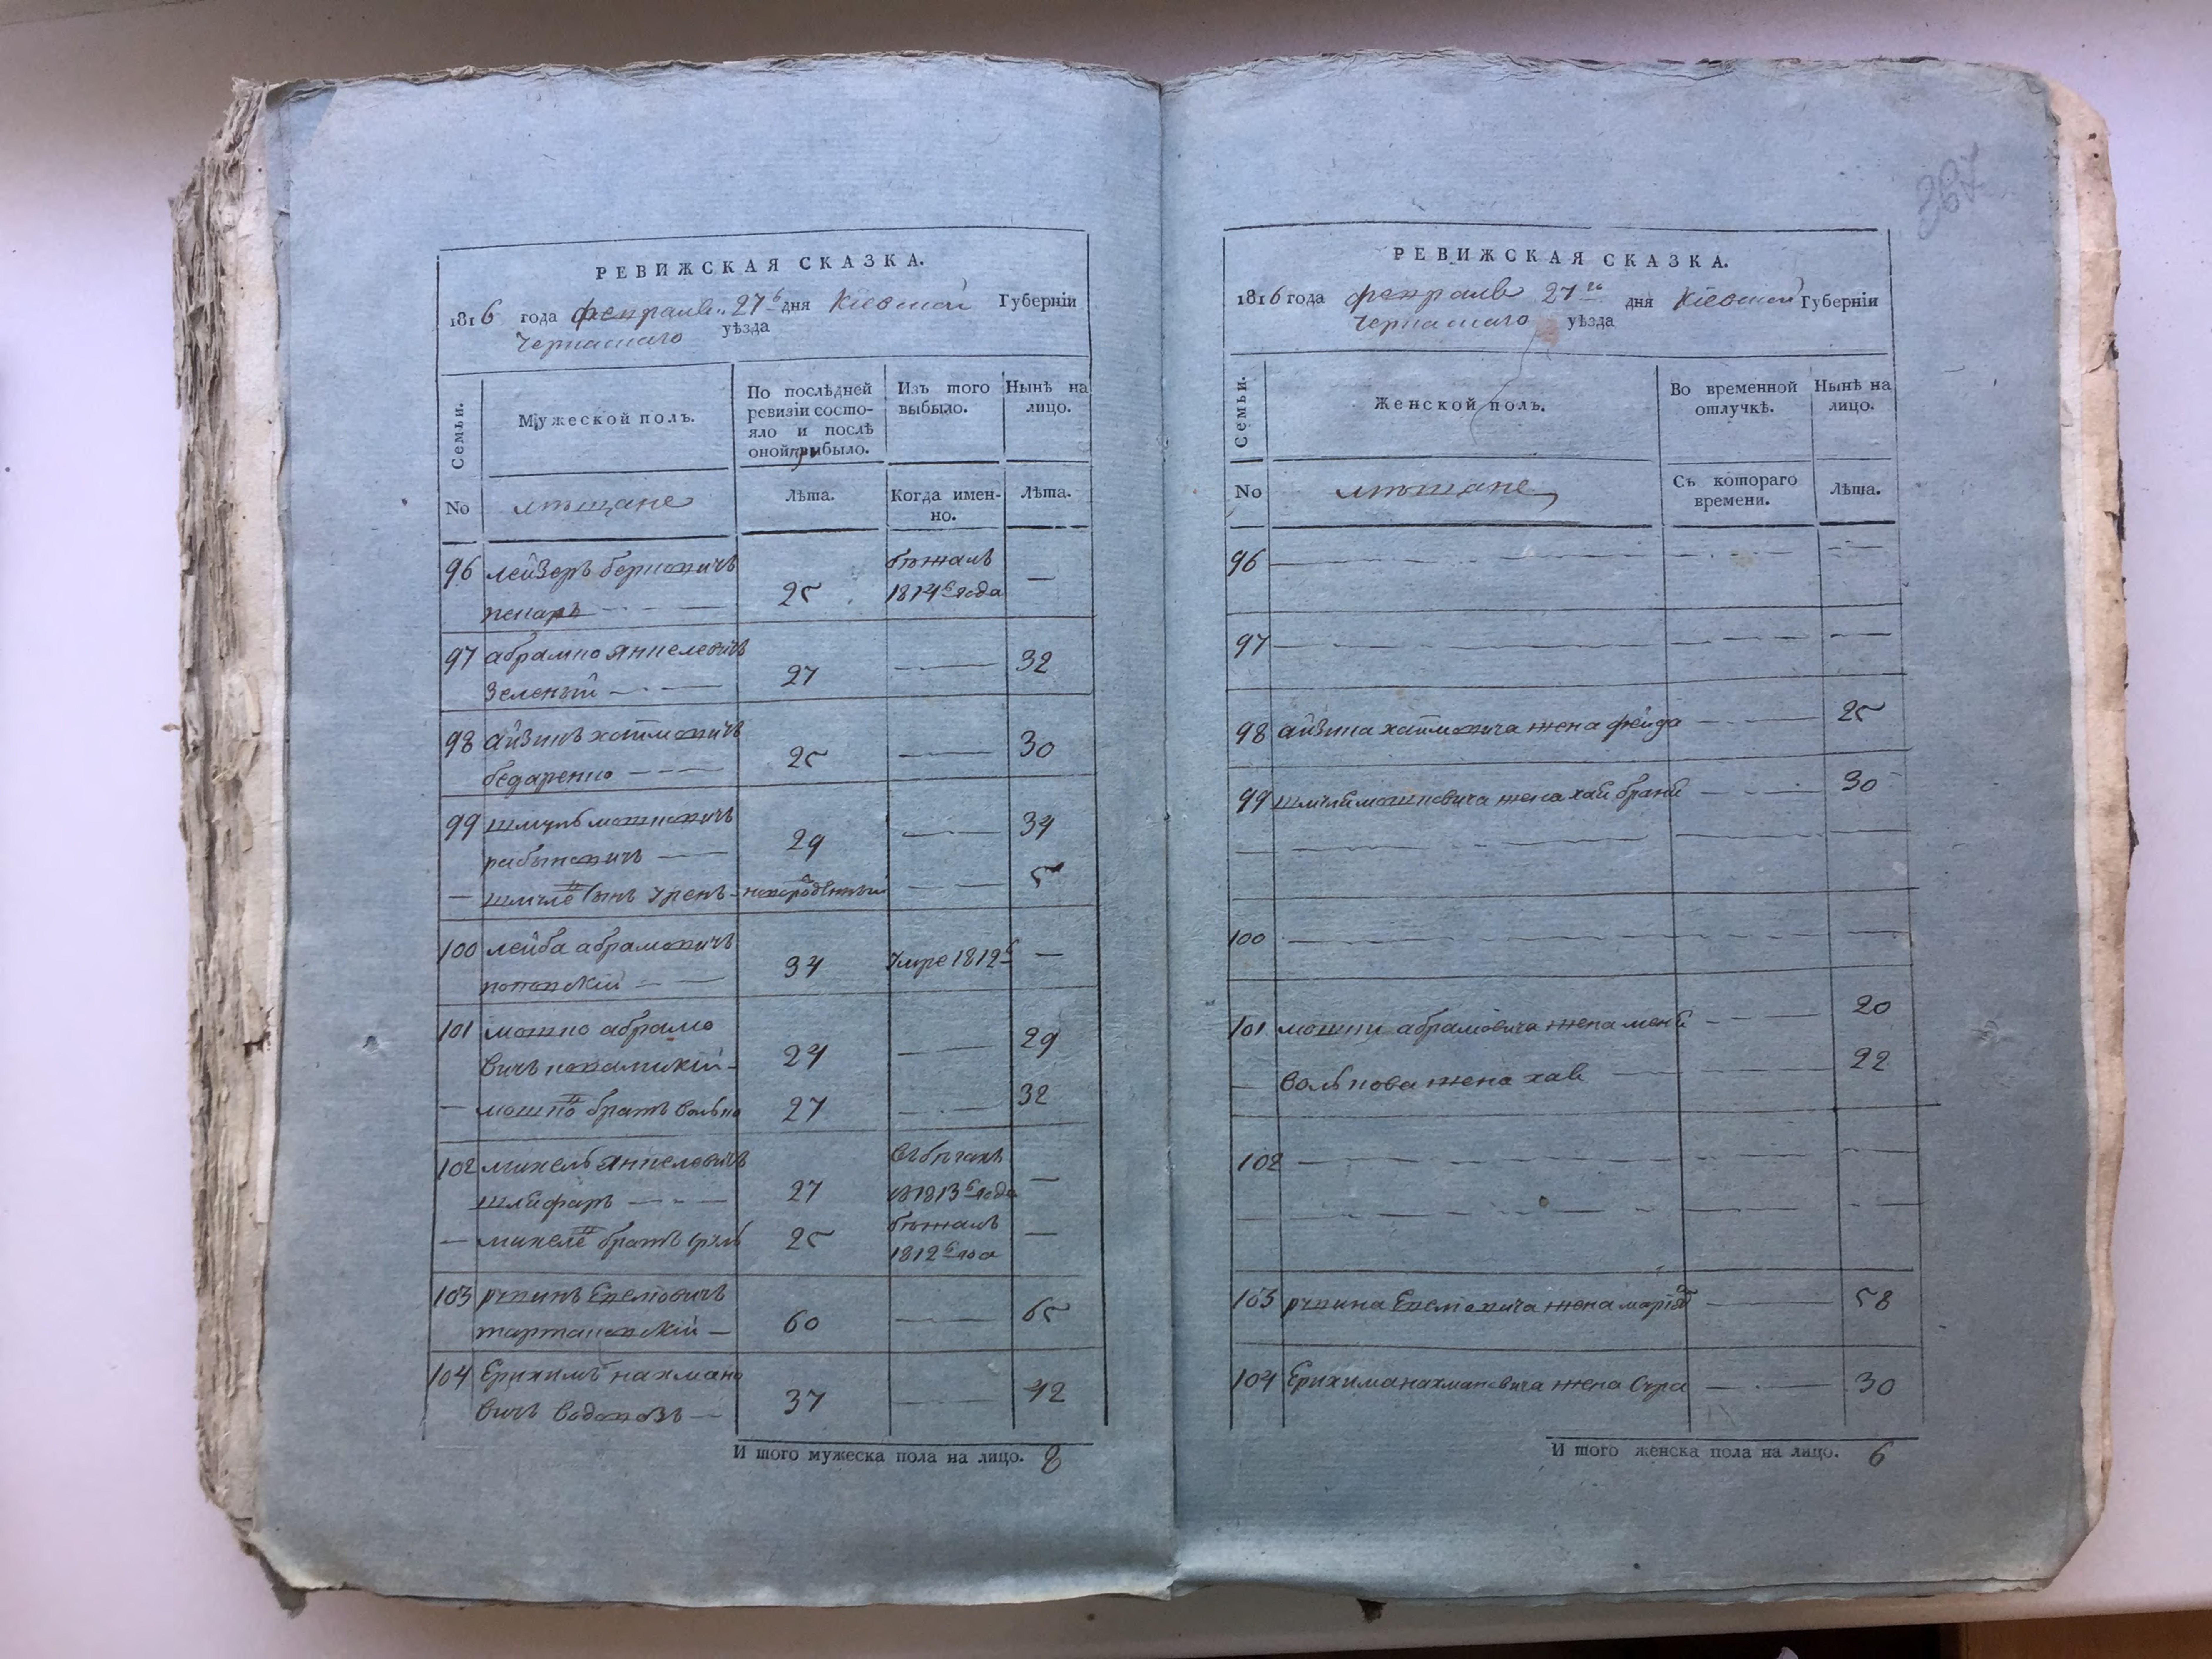 РЕВИЖСКАЯ СКАЗКА.
1816 года февраля 27 дня Кіевской Губерніи
Черкаскаго уѣзда
Семьи.
Мужеской полъ.
По послѣдней ревизіи состо-
яло и послѣ
оной прибыло.
Изъ того
выбыло.
Нынѣ на
лицо.
No
мѣщане
Лѣта.
Когда имен-
но.
Лѣта.
96 лейзеръ берковичъ бѣжалъ
25 1814 года —
97 абрамко янкелевичъ
зеленый 27 — 32
98 айзикъ хаимовичъ
бедаренко 25 — 30
99 шмуль мошковичъ
рабыновичъ 29 — 34
— шмуля сынъ новорожденный — 5
100 лейба абрамовичъ
34 умре 1812 —
101 мошко абрамо
вичъ 24 — 29
— мошки братъ волько 27 — 32
102 михель янкелевичъ въ бѣгахъ
шлифаръ 27 1813 года —
— михеля братъ сруль 25 бѣжалъ
1812 года —
103 рувинъ
60 — 65
104 Ерихимъ нахмано
вичъ водовозъ 37 — 42
И того мужеска пола на лицо. 8
367
РЕВИЖСКАЯ СКАЗКА.
1816 года февраля 27 дня Кіевской Губерніи
Черкаскаго уѣзда
Семьи.
Женской полъ.
Во временной
отлучкѣ.
Нынѣ на
лицо.
No
мѣщане
Съ котораго
времени.
Лѣта.
96
97
98 айзика хаимовича жена фейга 25
99 шмуля мошковича жена хая 30
100
101 мошки абрамовича жена 20
— волькова жена хая 22
102
103 рувина жена 58
104 Ерихима нахмановича жена Сура 30
И того женска пола на лицо. 6